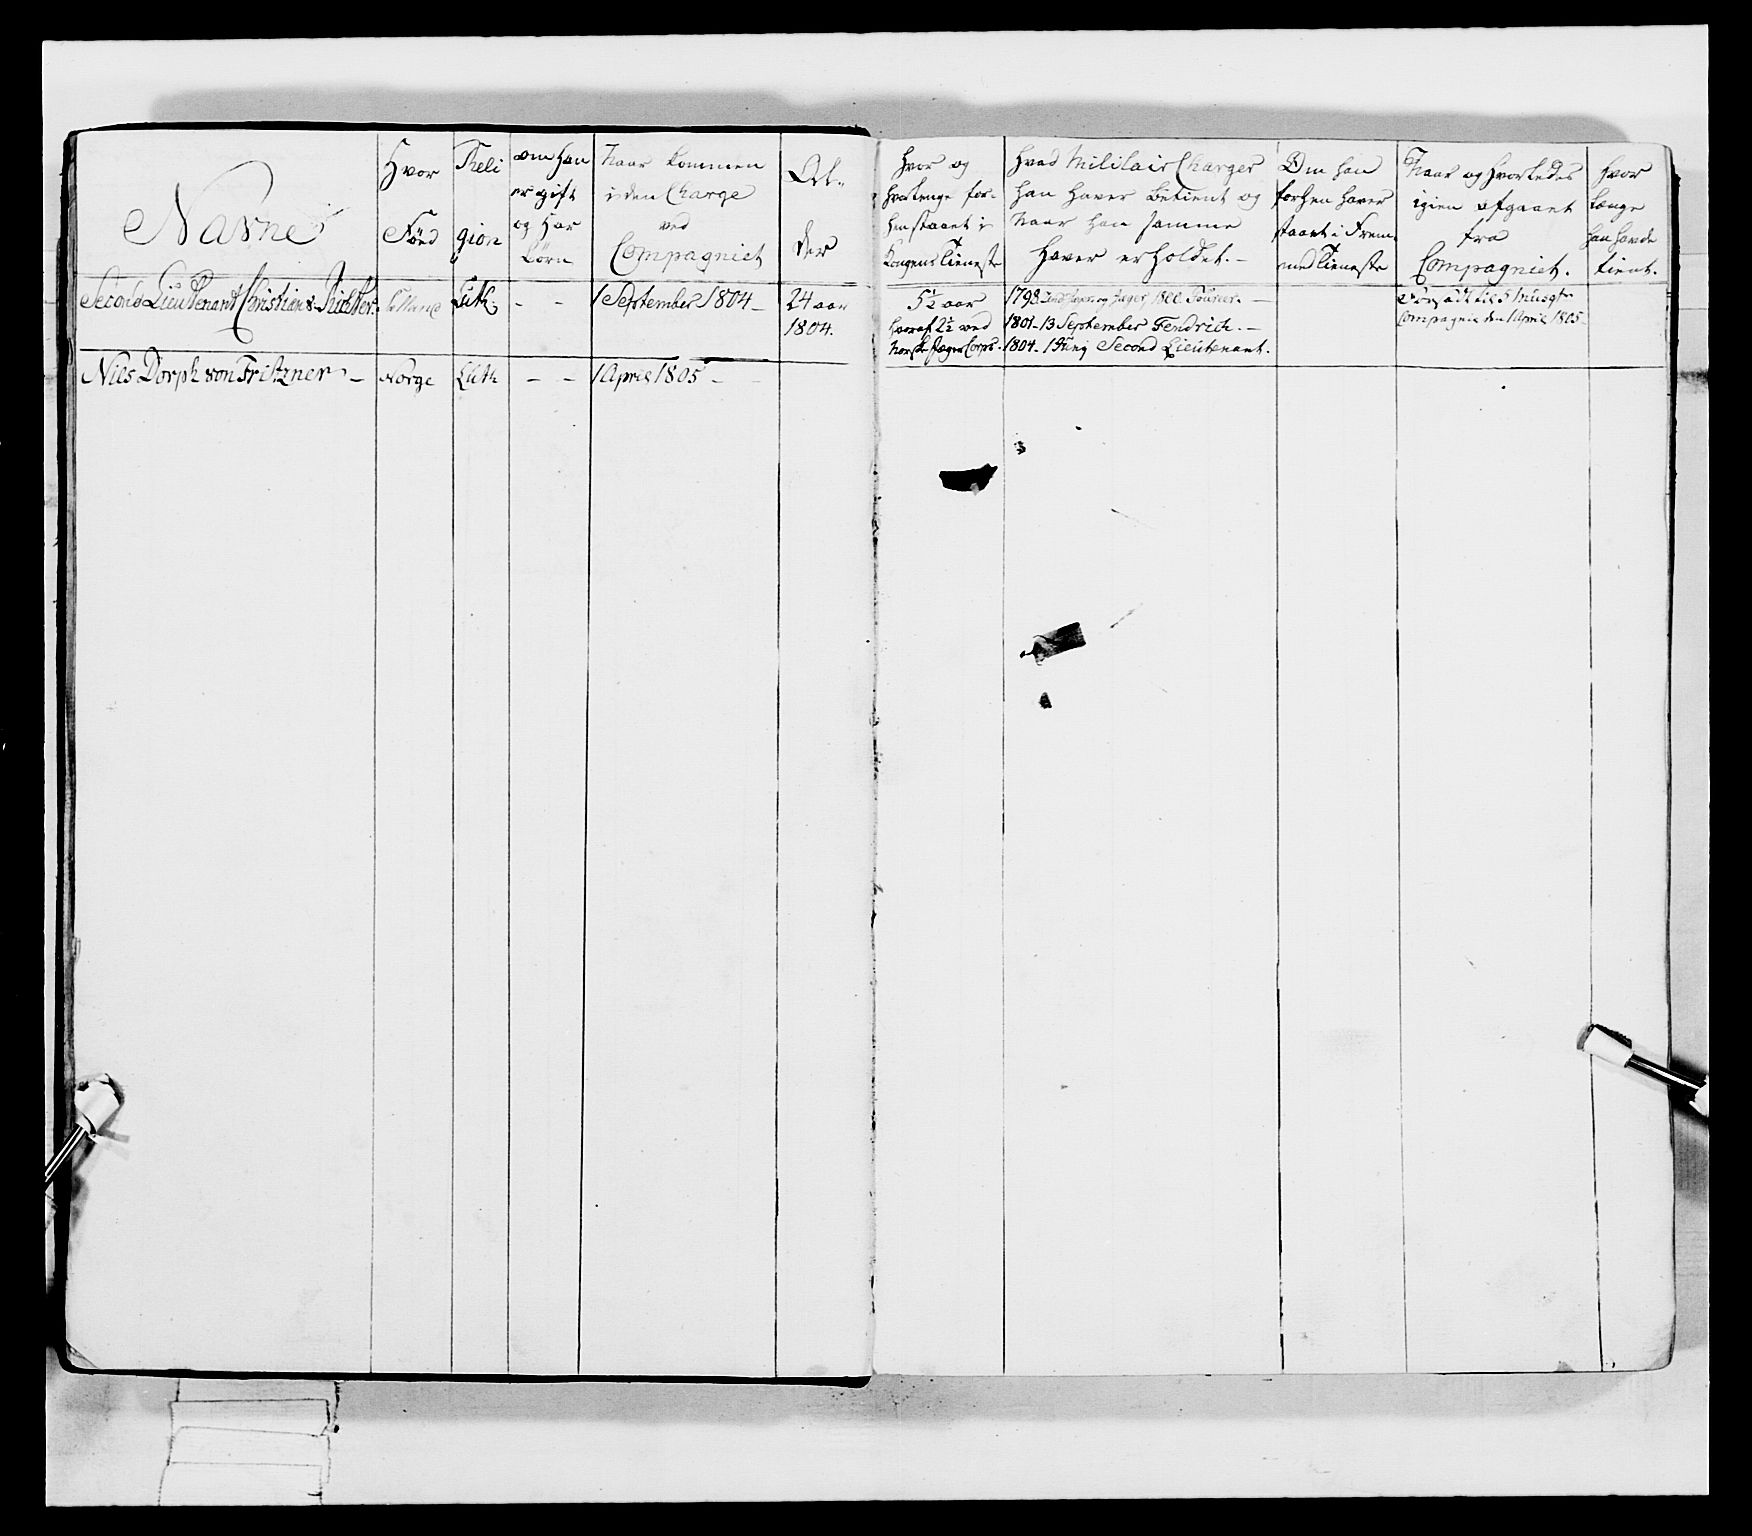 Navne
Hvor
Föed
Reli
gion
om han
er gift
og har
börn
Naar kommen
i den Charge
ved
Compagniet
Al-
der
Hvor og
hvorlenge for-
hen staaet i
Kongens Tieneste
Hvad Militair Charger
han haver betient og
naar han samme
haver erholdet.-
Om han
forhen haver
staaet i Frem-
med Tieneste
Naar og hvorledes
igien afgaaet
fra
Compagniet.
Hvor
længe
han havde
tient.
Second Lieutenant Christian Richter.
Luth:
- -
1 September 1804 -
24 aar
1804.
5½ aar
hvoraf 2½ ved
Norske Jæger Corps.
1798 og Jæger, 1800 -
1801 - 13 September Fendrich. -
1804 - 1 Juny Second Lieutenant.
til 5 Musqt:
Compagnie den 1 April 1805-
Niels Dorph von Fritzner -
Norge
Luth
- -
1 April 1805 -